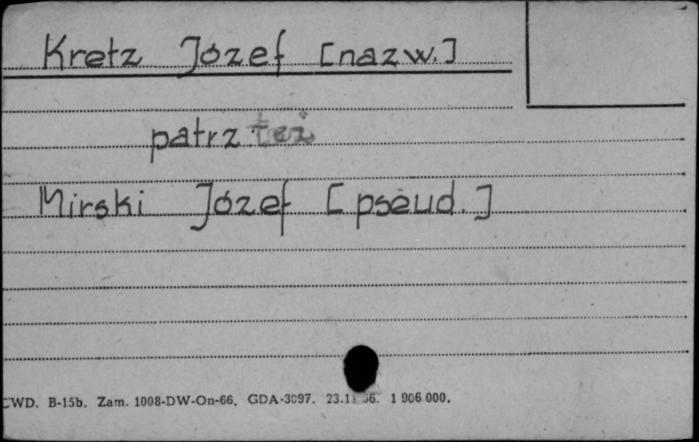 Kretz Józef [nazw.]
patrz też
Mirski Józef [pseud.]
CWD. B-15b. Zam. 1008-DW-On-66. GDA-3097. 1 906 000.